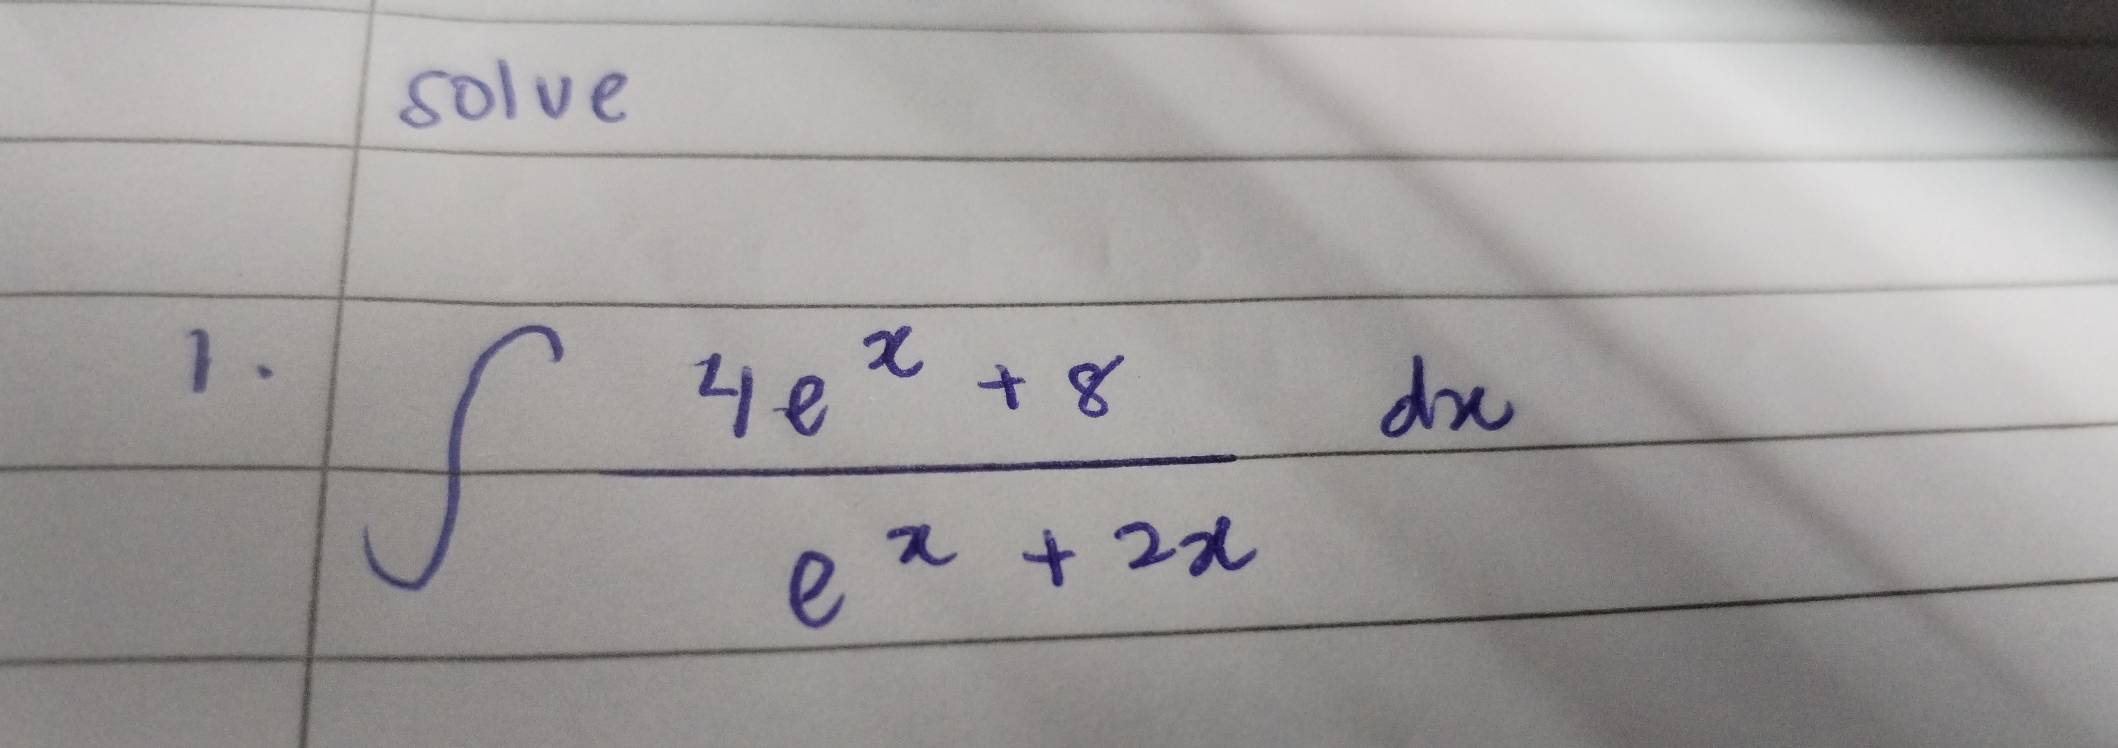 solve
1. ∫ (4e^x + 8)/(e^x + 2x) dx